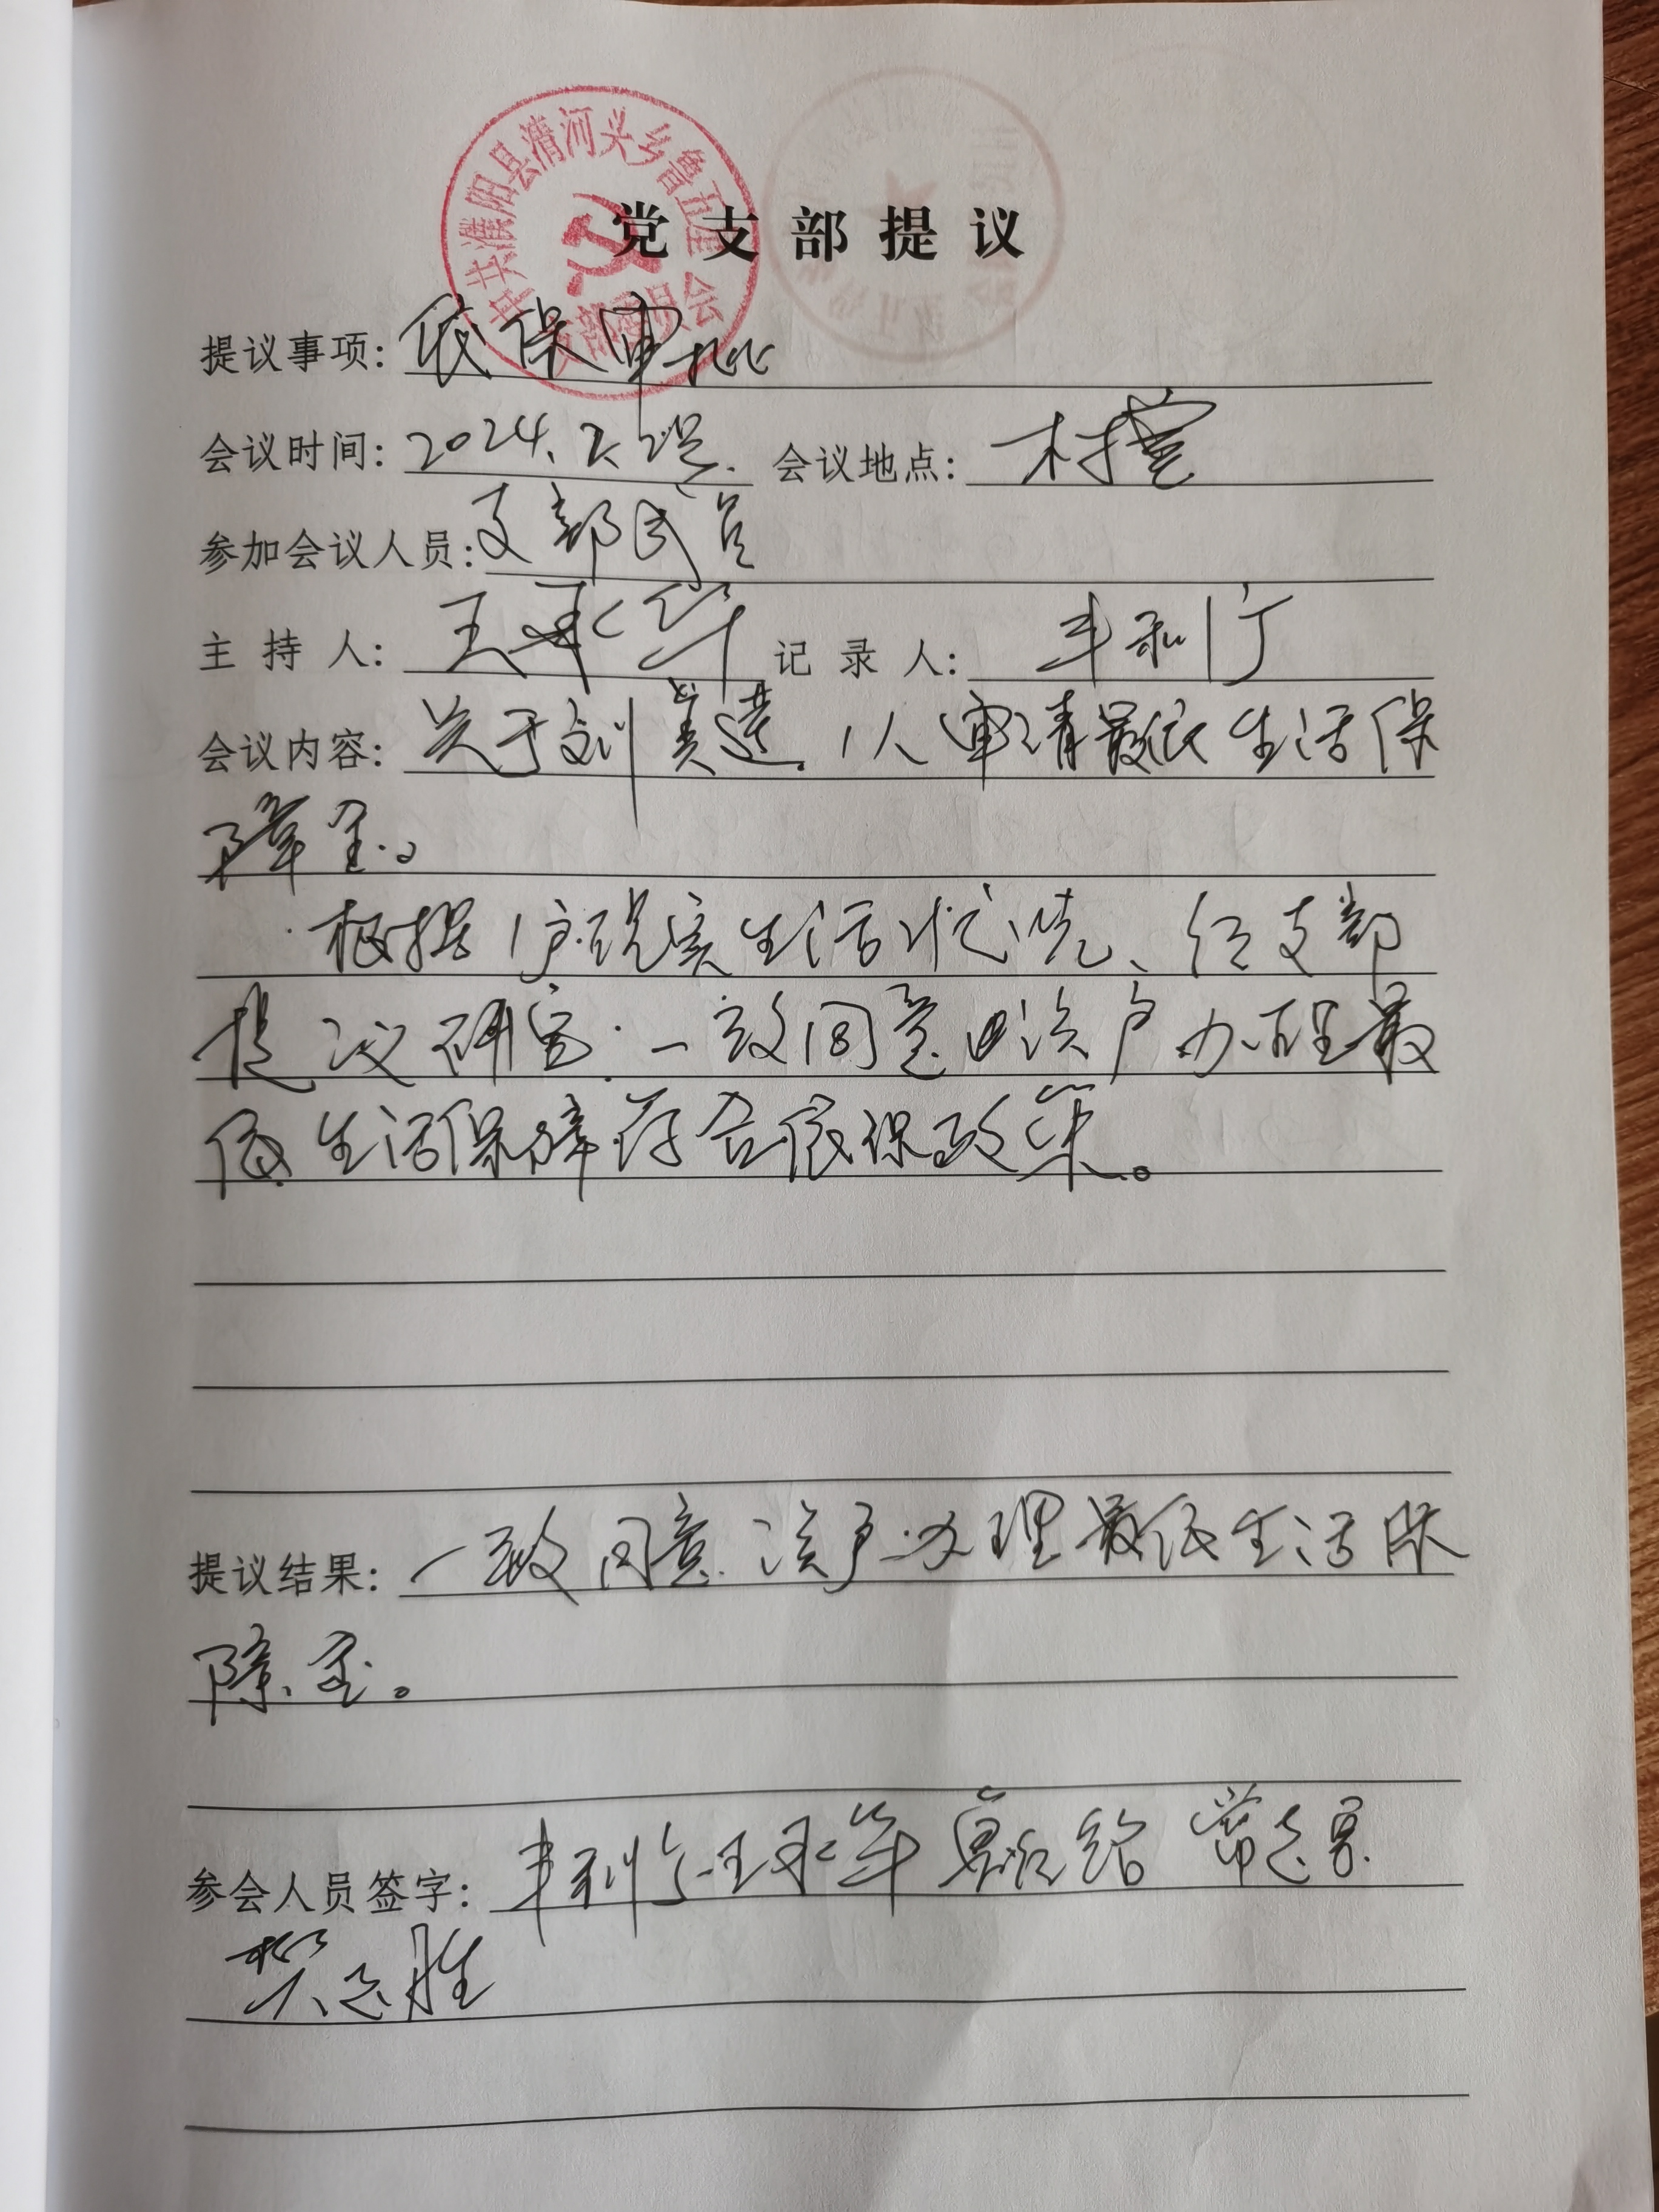 中共濮阳县清河头乡鲁五星
支部委员会
党支部提议
提议事项: 低保审批
会议时间: 2024. 会议地点: 村室
参加会议人员: 支部成员
主持人: 王永华 记录人: 丰利宁
会议内容: 关于刘美莲 1人 申请最低生活保
障金。
根据1户现实生活状况、经支部
提议研究. 一致同意 该户办理最
低生活保障符合低保政策。
提议结果: 一致同意 该户办理最低生活保
障金。
参会人员签字: 丰利宁 王永华
志胜